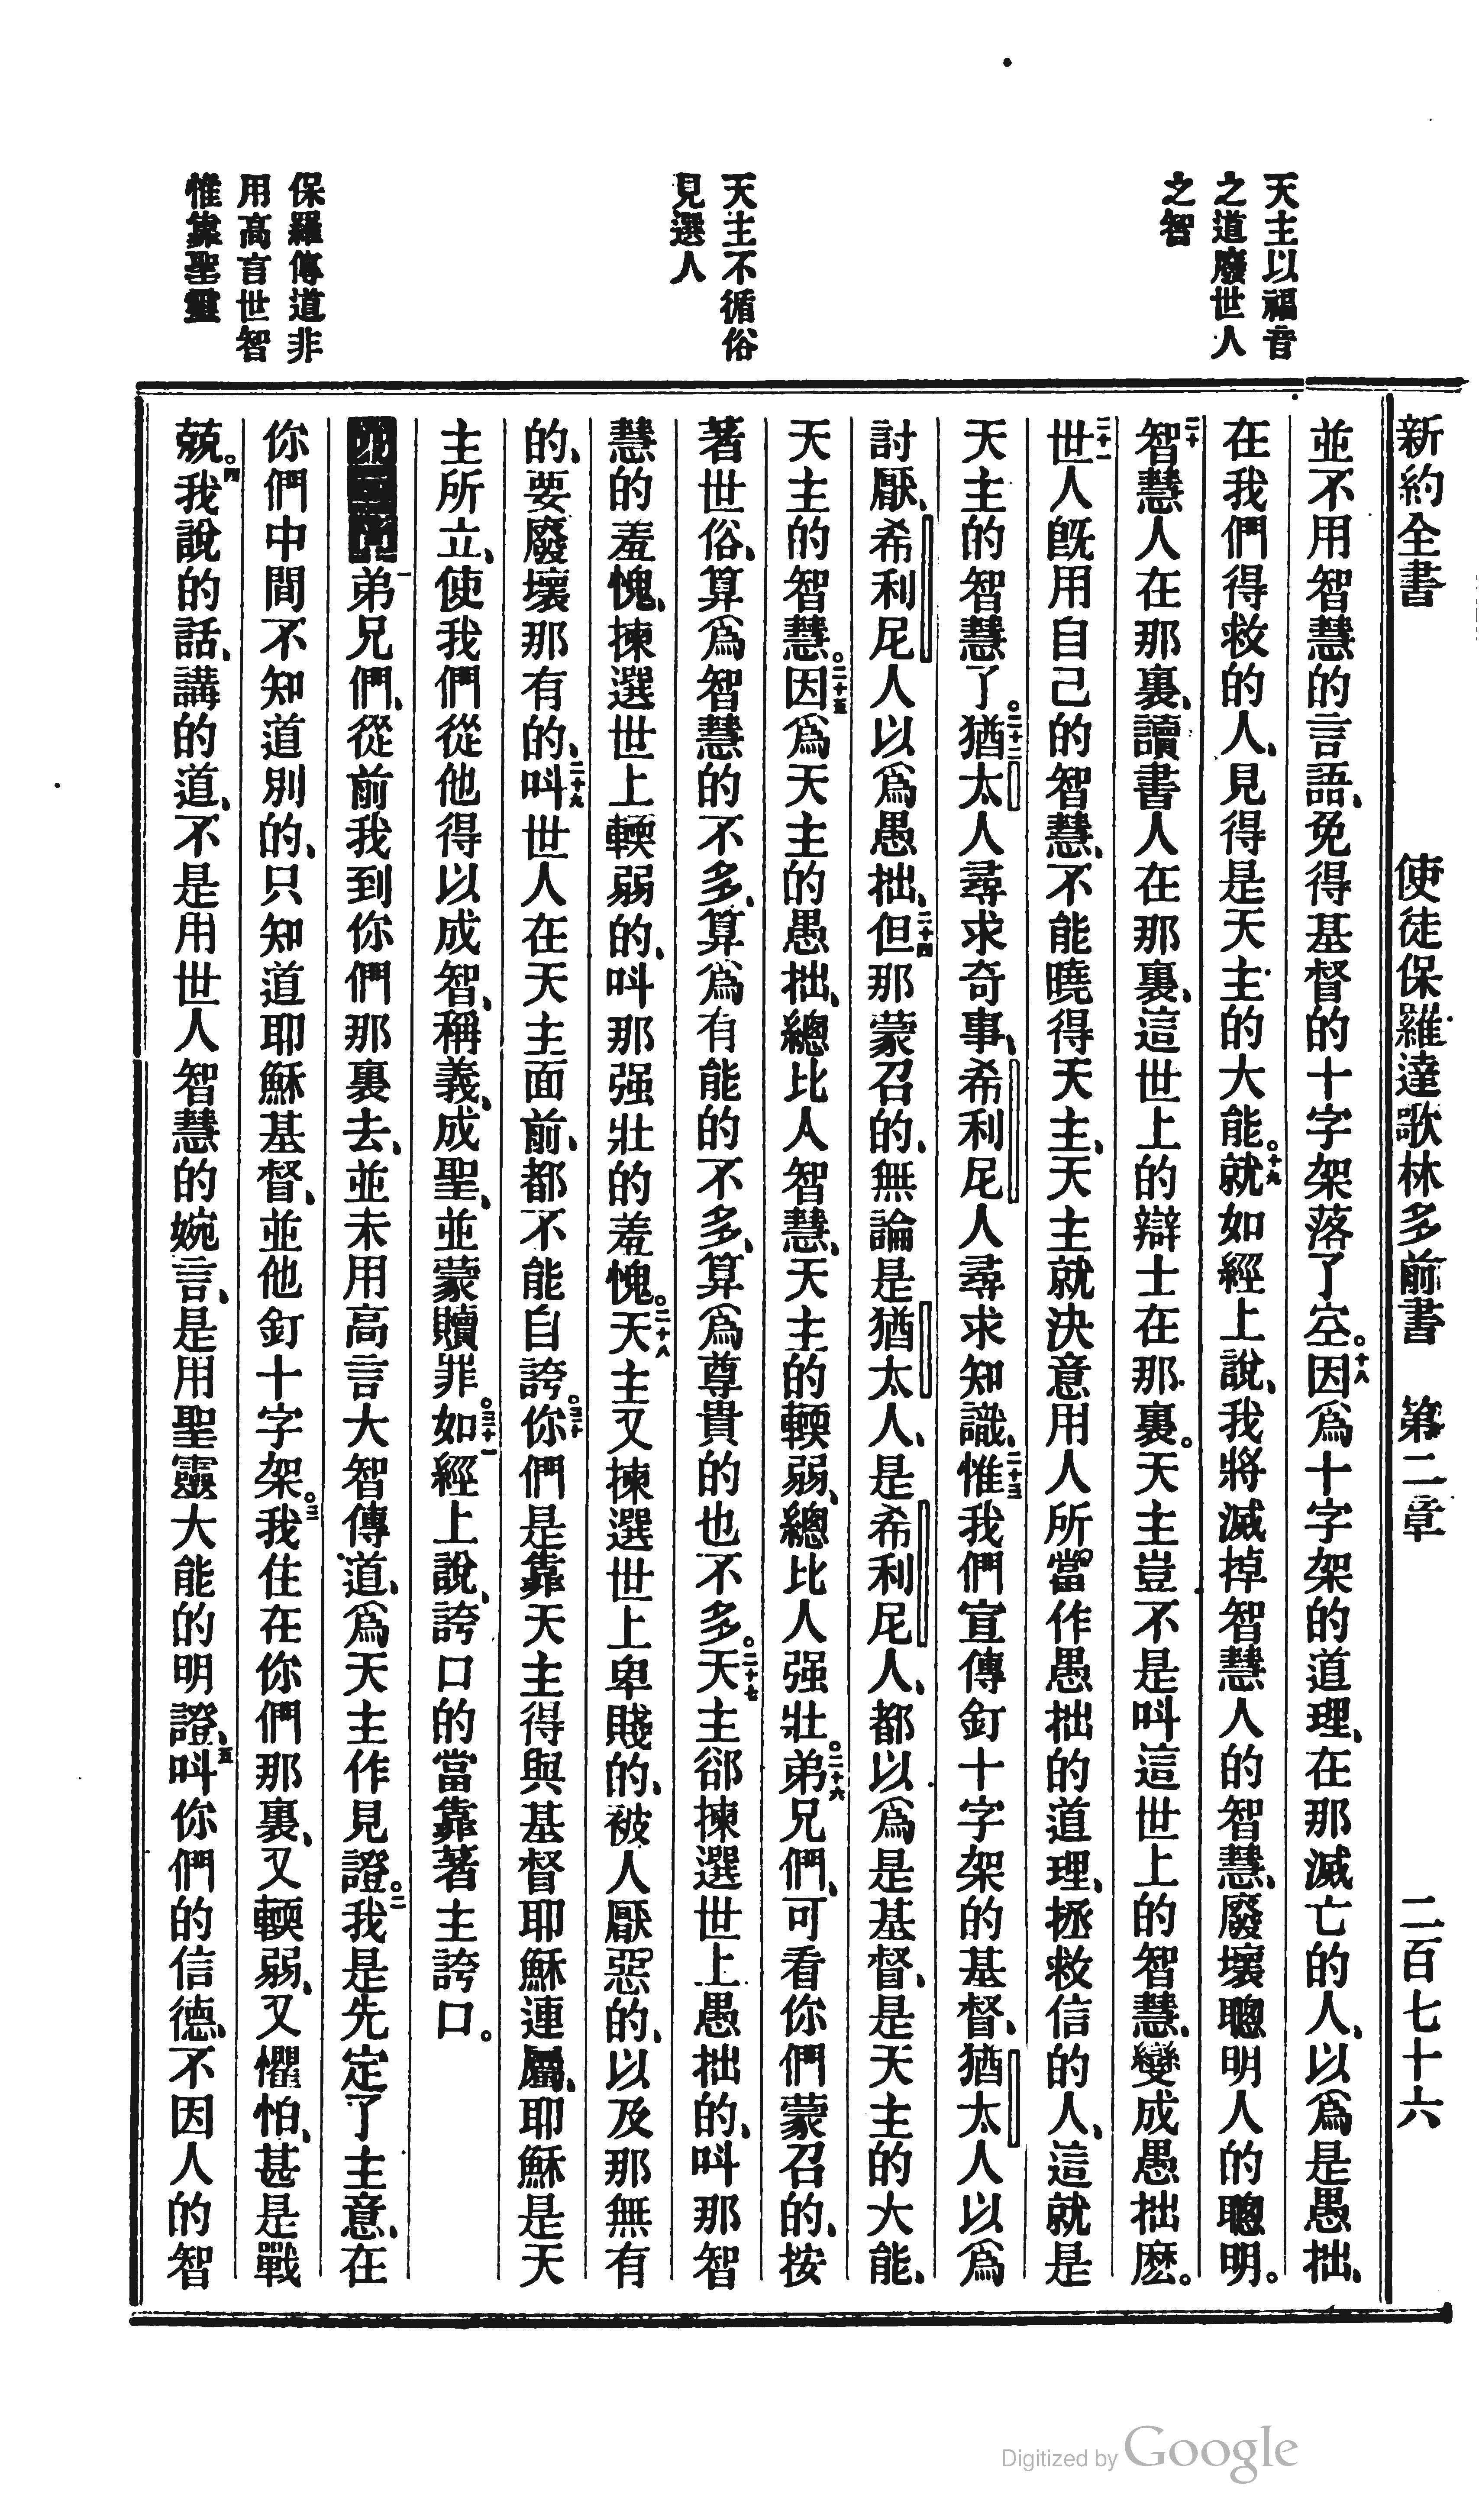 新約全書 使徒保羅達歌林多前書 第二章 二百七十六
天主以福音
之道廢世人
之智
天主不循俗
見選人
保羅傳道非
用高言世智
惟靠聖靈
並不用智慧的言語、免得基督的十字架落了空。十八因爲十字架的道理、在那滅亡的人、以爲是愚拙、
在我們得救的人、見得是天主的大能。十九就如經上說、我將滅掉智慧人的智慧、廢壞聰明人的聰明。
二十智慧人在那裏、讀書人在那裏、這世上的辯士在那裏。天主豈不是呌這世上的智慧、變成愚拙麽。
二十一世人旣用自己的智慧、不能曉得天主、天主就決意用人所當作愚拙的道理、拯救信的人、這就是
天主的智慧了。二十二猶太人尋求奇事、希利尼人尋求知識、二十三惟我們宣傳釘十字架的基督、猶太人以爲
討厭、希利尼人以爲愚拙、二十四但那蒙召的、無論是猶太人、是希利尼人、都以爲是基督、是天主的大能、
天主的智慧。二十五因爲天主的愚拙、總比人智慧、天主的輭弱、總比人强壯。二十六弟兄們、可看你們蒙召的、按
著世俗、算爲智慧的不多、算爲有能的不多、算爲尊貴的也不多。二十七天主卻揀選世上愚拙的、呌那智
慧的羞愧、揀選世上輭弱的、呌那强壯的羞愧。二十八天主又揀選世上卑賤的、被人厭惡的、以及那無有
的、要廢壞那有的、二十九呌世人在天主面前、都不能自誇。三十你們是靠天主得與基督耶穌連屬、耶穌是天
主所立、使我們從他得以成智、稱義、成聖、並蒙贖罪。三十一如經上說、誇口的當靠著主誇口。
一弟兄們、從前我到你們那裏去、並未用高言大智傳道、爲天主作見證。二我是先定了主意、在
你們中間不知道別的、只知道耶穌基督、並他釘十字架。三我住在你們那裏、又輭弱、又懼怕、甚是戰
兢。四我說的話、講的道、不是用世人智慧的婉言、是用聖靈大能的明證、五呌你們的信德、不因人的智
Digitized by Google